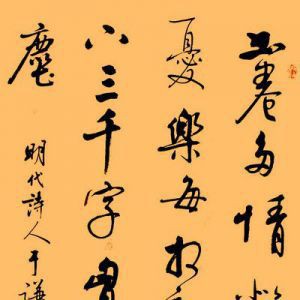 书卷多情
憂樂每相
下三千字
塵
明代詩人于謙